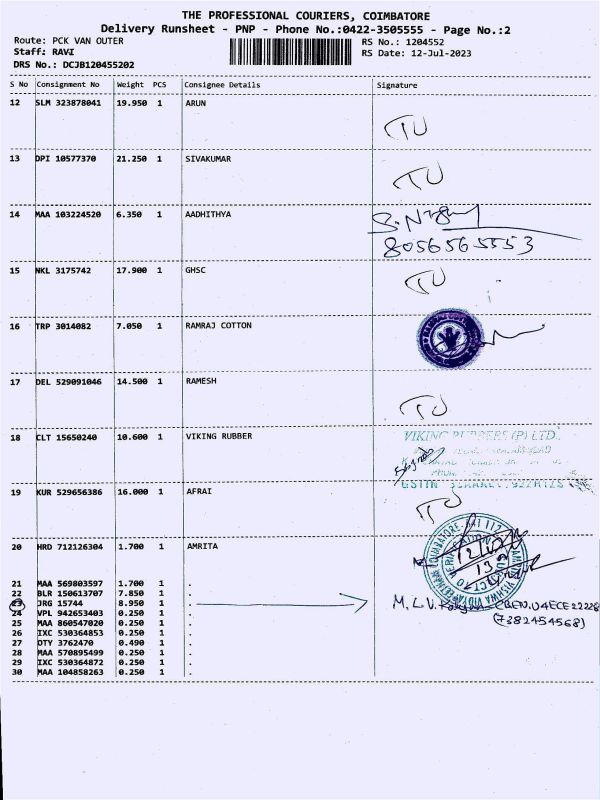 THE PROFESSIONAL COURIERS, COIMBATORE
Delivery Runsheet - PNP - Phone No.:0422-3505555 - Page No.:2
Route: PCK VAN OUTER RS No.: 1204552
Staff: RAVI RS Date: 12-Jul-2023
DRS No.: DCJB120455202
S No Consignment No Weight PCS Consignee Details Signature
12 SLM 323878041 19.950 1 ARUN
TU
13 DPI 10577370 21.250 1 SIVAKUMAR
TU
14 MAA 103224520 6.350 1 AADHITHYA
8056565553
15 NKL 3175742 17.900 1 GHSC
TU
16 TRP 3014082 7.050 1 RAMRAJ COTTON
17 DEL 529091046 14.500 1 RAMESH
TU
18 CLT 15650240 10.600 1 VIKING RUBBER
VIKING RUBBERS (P) LTD.
GSTIN
19 KUR 529656386 16.000 1 AFRAI
TU
20 HRD 712126304 1.700 1 AMRITA
21 MAA 569803597 1.700 1 .
22 BLR 150613707 7.850 1 .
23 JRG 15744 8.950 1 .
M. L. V.
24 VPL 942653403 0.250 1 .
25 MAA 860547020 0.250 1 .
(7382454568)
26 IXC 530364853 0.250 1 .
27 DTY 3762470 0.490 1 .
28 MAA 570895499 0.250 1 .
29 IXC 530364872 0.250 1 .
30 MAA 104858263 0.250 1 .